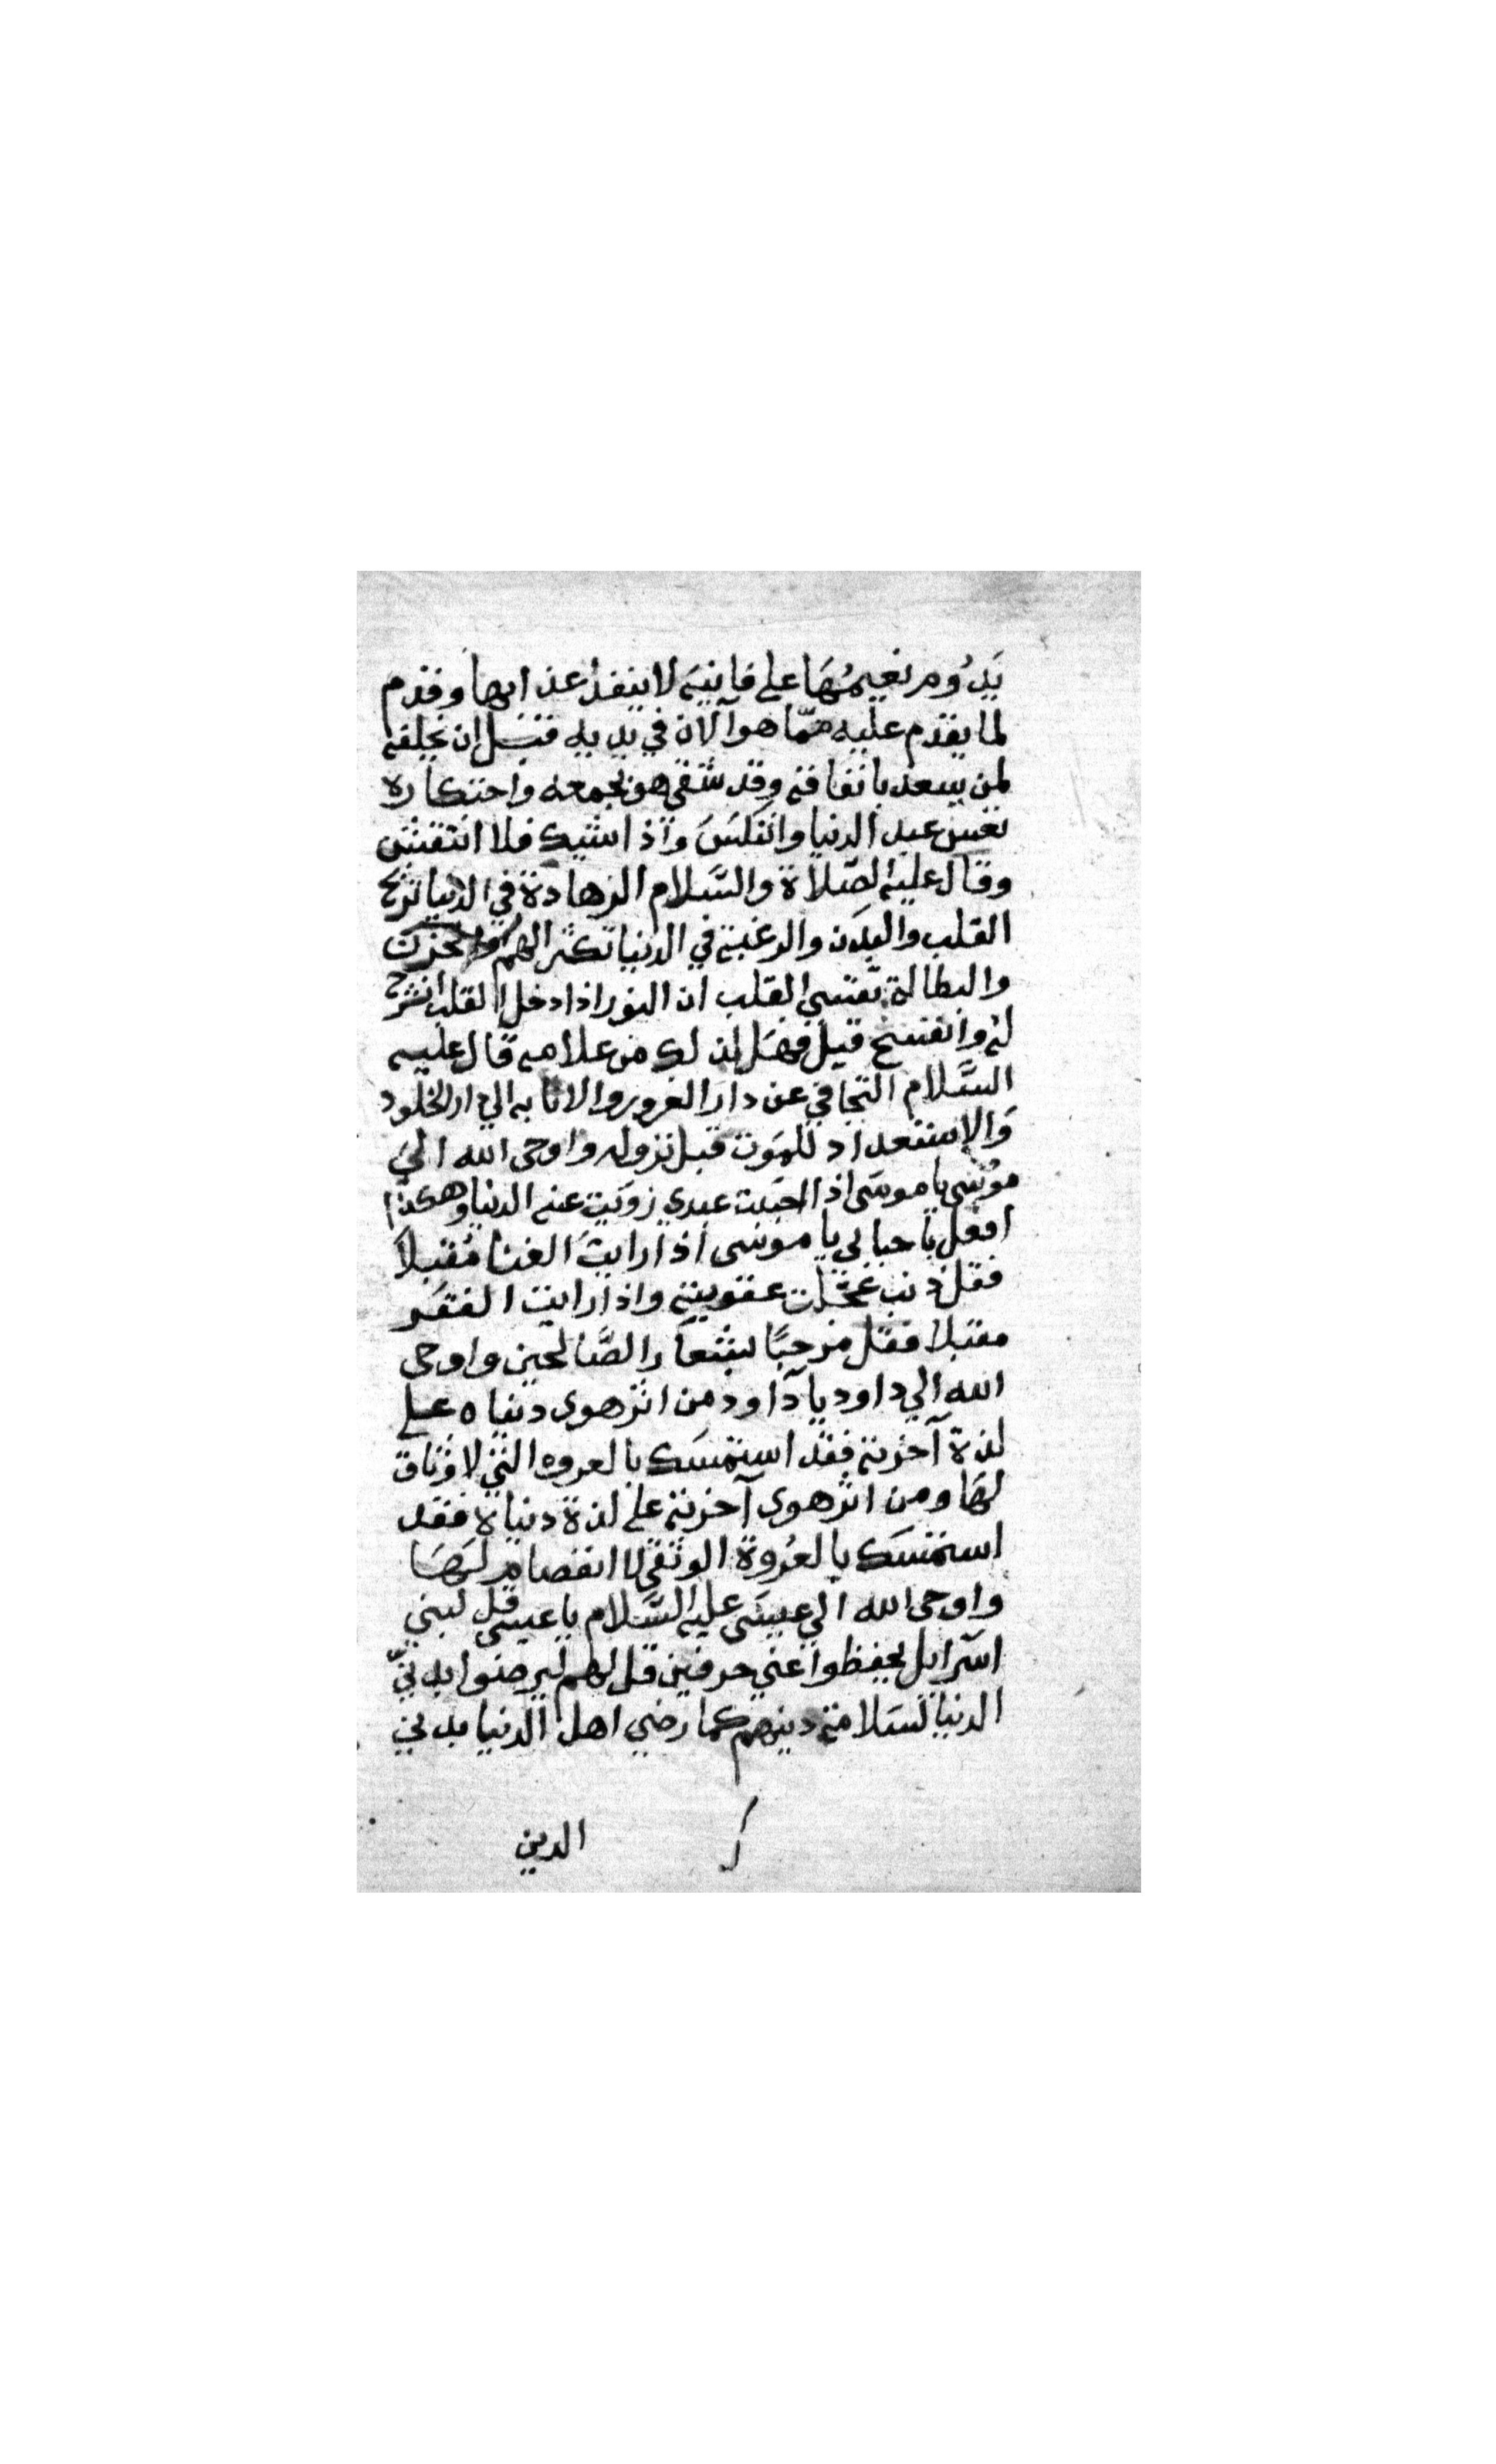 يَدُوم نعيمُهَا على فانيَه لا ينفذ عذابها وقدم
لما يقدم عليه ممّا هو آلان في يديه قبل ان يخلفه
لمن يسعد بانفاقه وقد شقى هو بجمعه واحتكاره
تعس عبد الدنيا وانتكسَ واذا شيك فلا انتقش
وقال عليه الصّلاة والسَّلام الزهادة في الدنيا تريح
القلب والبدَن والرغبة في الدنيا تكثر الهم والحزن
والبطالة تقسي القلب ان النور اذا دخل القلب انشرح
له وانفسح قيل فهَل لذلك من علامه قال عليه
السَّلام التجافي عن دار الغرور والانابه الي دار الخلود
وَالإستعداد للمَوت قبل نزوله واوحى الله الي
موُسَى يا موسَى اذا احبَبت عبدي زوَيت عنه الدنيا وهكذا
افعل باحبابى يا موسى اذا رايتَ الغنا مُقبلاً
فقل ذنب عجّلت عقوبته واذا رايت الفقَر
مقبلا فقل مرحبًا بشعار الصَّالحين واوحى
الله الي داود يا دآاود من اثر هوى دنياه على
لذة آخرته فقد استمسَك بالعروه التي لا وثاق
لهَا ومن اثر هوى آخرته على لذة دنياه فقد
استمسَك بالعُروة الوثقى لا انفصام لهَا
واوحى الله الي عيسَى عليه السَّلام يا عيسى قل لبني
اسَرايل يحفظوا عني حرفين قل لهم ليرضوا بدنيّ
الدنيا لسَلامة دينهم كما رضي اهل الدنيا بدني
الدين